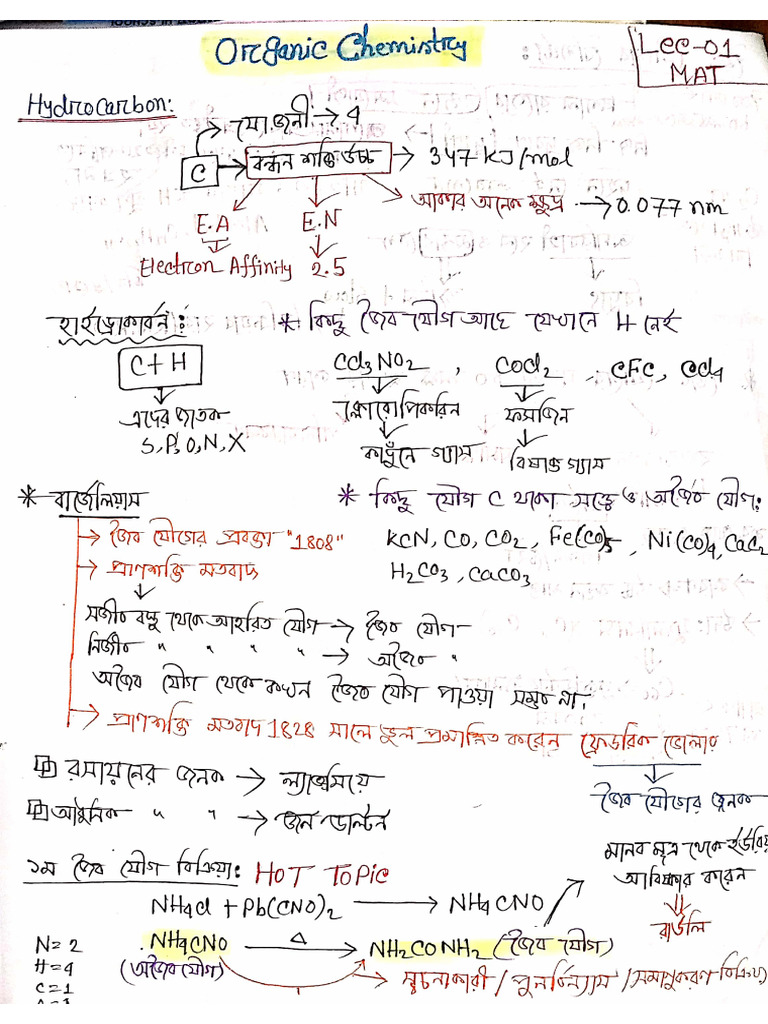 Organic Chemistry
Lec-01
MAT
Hydrocarbon:
যোজনী → 4
C → বন্ধন শক্তি উচ্চ → 347 kJ/mol
আকার অনেক ক্ষুদ্র → 0.077 nm
E.A E.N
Electron Affinity 2.5
হাইড্রোকার্বন: * কিছু জৈব যৌগ আছে যেখানে H নেই
C+H CCl3NO2, COCl2, CFC, CCl4
এদের জাতক ক্লোরোপিকরিন ফসজিন
S, P, O, N, X কাঁদুনে গ্যাস বিষাক্ত গ্যাস
* বার্জেলিয়াস * কিছু যৌগ C থাকা সত্ত্বেও অজৈব যৌগ:
→ জৈব যৌগের প্রবক্তা "1808" KCN, CO, CO2, Fe(CO)5, Ni(CO)4, CaC2
→ প্রাণশক্তি মতবাদ H2CO3, CaCO3
সজীব বস্তু থেকে আহরিত যৌগ → জৈব যৌগ
নির্জীব " " " " → অজৈব "
অজৈব যৌগ থেকে কখন জৈব যৌগ পাওয়া সম্ভব না।
→ প্রাণশক্তি মতবাদ 1828 সালে ভুল প্রমাণিত করেন ফ্রেডরিক ভোলার
রসায়নের জনক → ল্যাভয়সিয়ে
জৈব যৌগের জনক
আধুনিক " " → জন ডাল্টন
মানব মূত্র থেকে ইউরিয়া
আবিষ্কার করেন
রাউলি
১ম জৈব যৌগ বিক্রিয়া: HOT TOPIC
NH4Cl + Pb(CNO)2 → NH4CNO
N=2 NH4CNO Δ→ NH2CONH2 (জৈব যৌগ)
H=4 (অজৈব যৌগ)
পুনর্বিন্যাস / সমাণুকরণ বিক্রিয়া
C=1